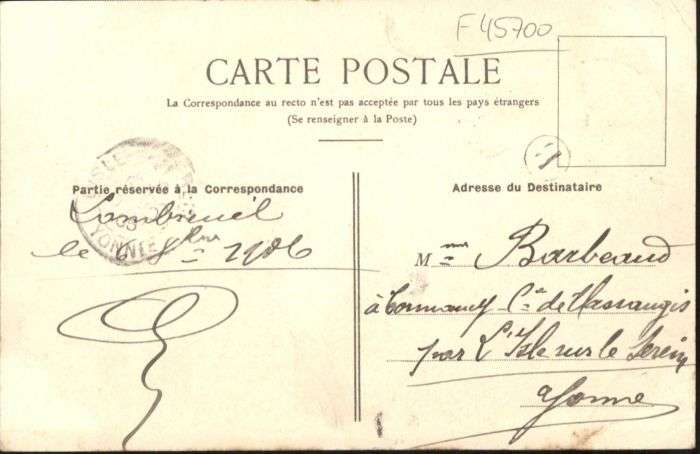 F 45700
CARTE POSTALE
La Correspondance au recto n'est pas acceptée par tous les pays étrangers
(Se renseigner à la Poste)
Partie réservée à la Correspondance
Adresse du Destinataire
Lombreuil
le 6 8bre 1906
YONNE
Mme Barbeaud
à Cormancy Cne de Massangis
par L'Isle sur le Serein
Yonne